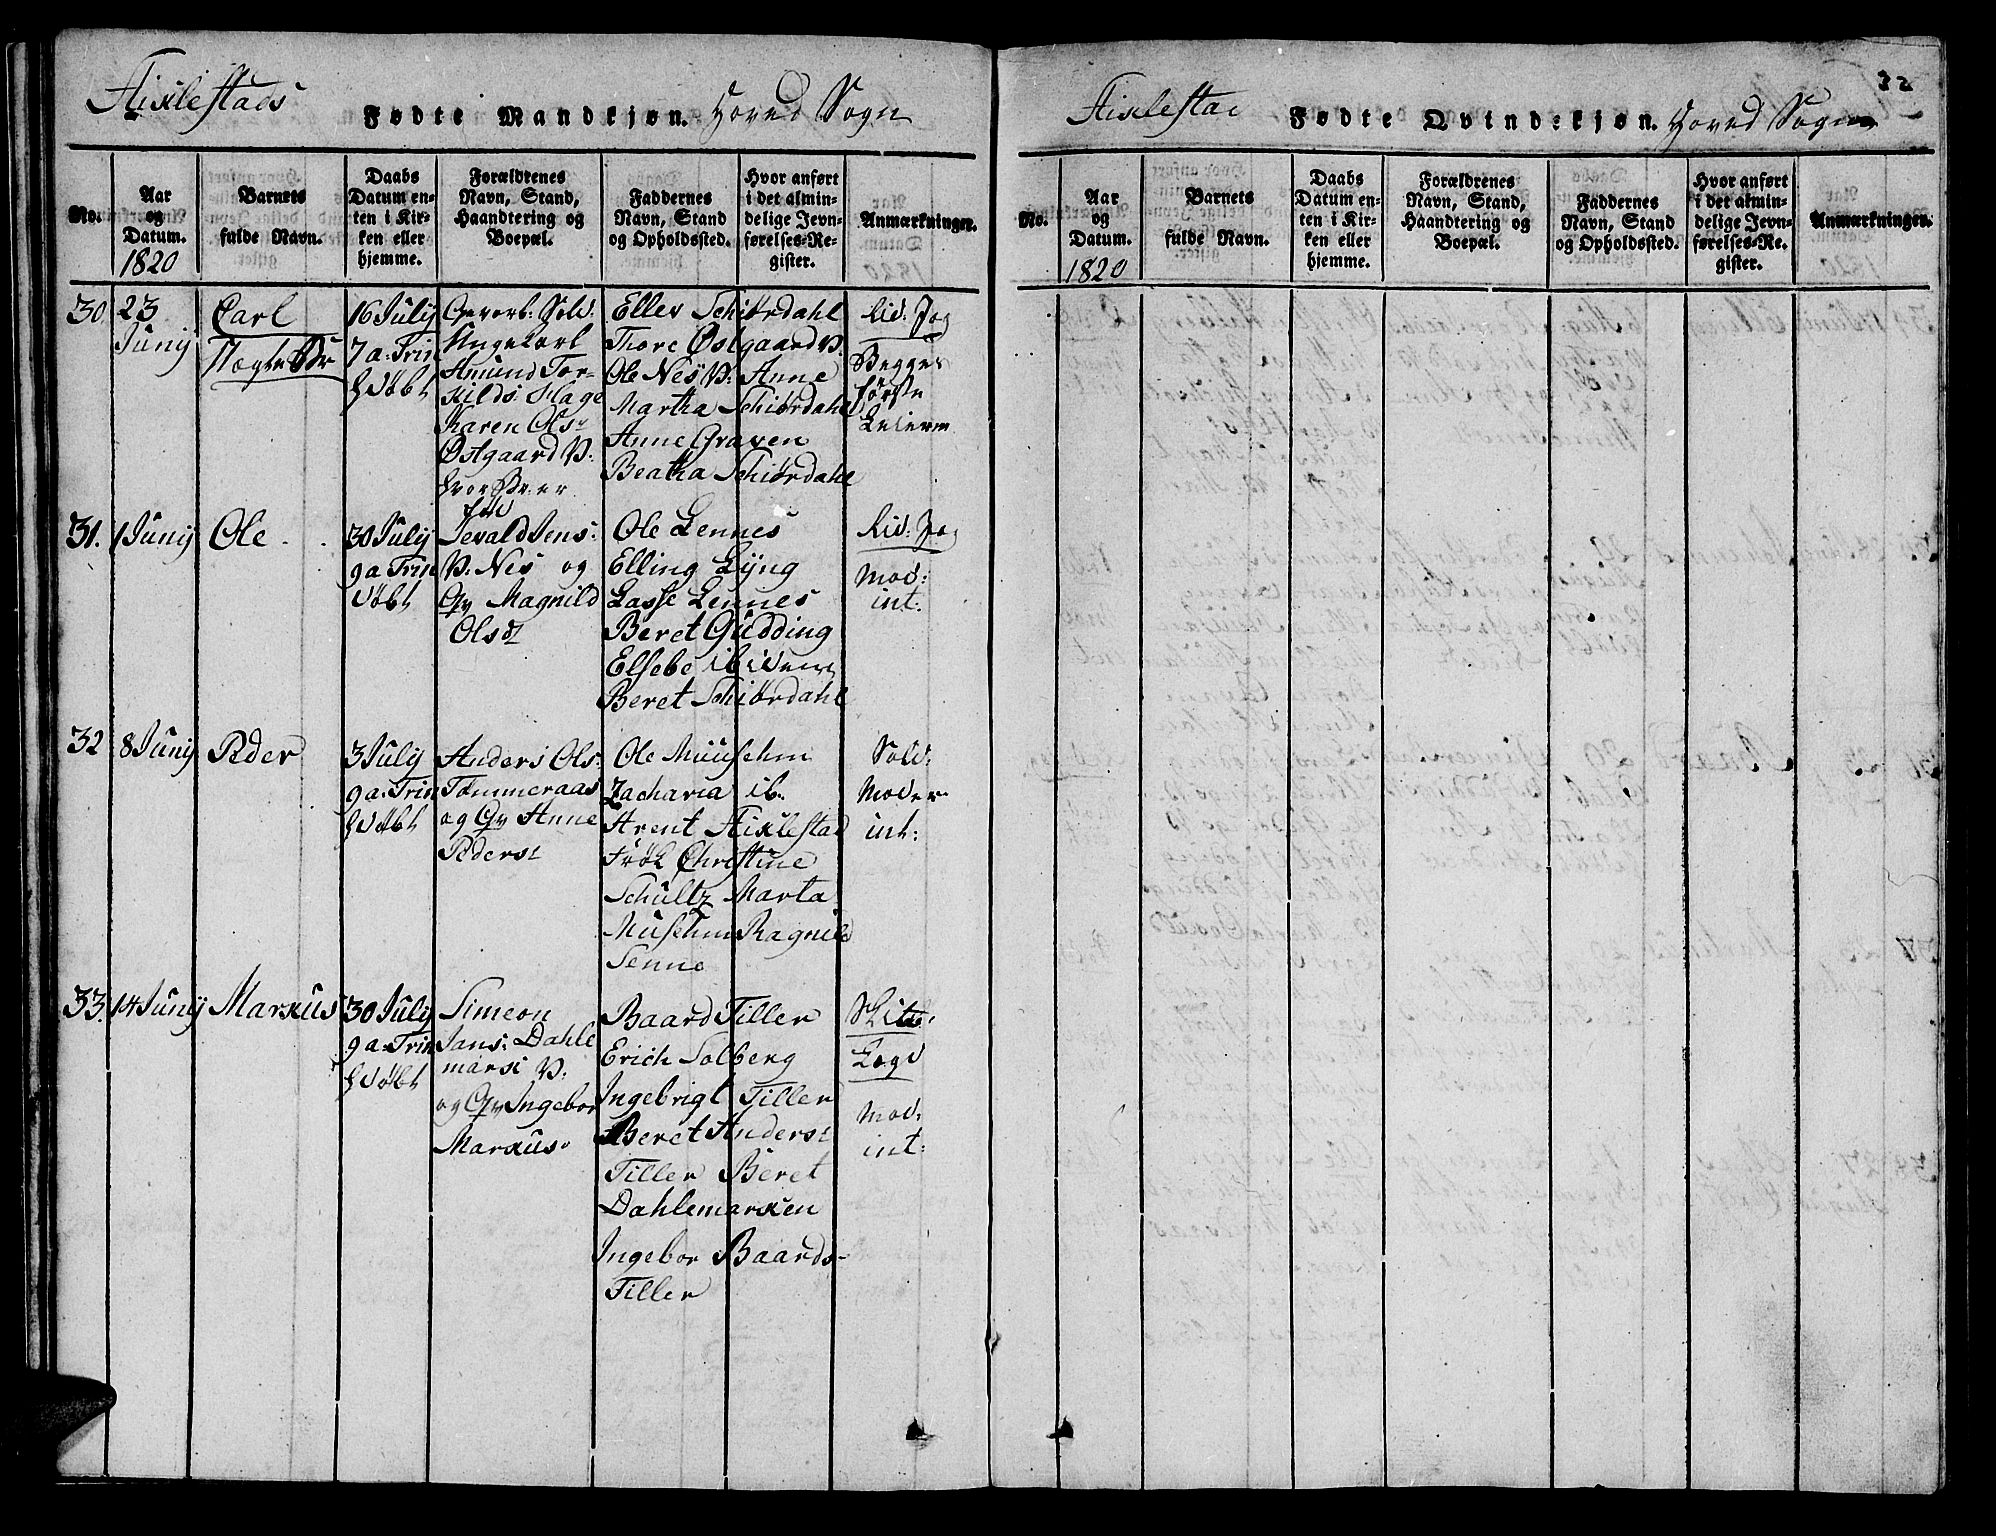 Aixlestads Fødte Mandkjøn. Hoved Sogn
No.
Aar og Datum. 1820
Barnets fulde Navn.
Daabs Datum enten i Kirken eller hjemme.
Forældrenes Navn, Stand, Haandtering og Boepæl.
Faddernes Navn, Stand og Opholdssted.
Hvor anført i det almindelige Jevnførelses-Register.
Anmærkninger.
30.
23 Junij
Carl
16 Julij
7 a. Trin
hdøbt
Ungekarl
Amund Tor-
kilds:
Karen Ols
Østgaard V:
Eller Schiørdahl
Thore Østgaard V:
Ole Nes V: Anne
Martha Schiørdahl
Anne Graven
Beatha Schiørdahl
Begges
første
Leierm
31.
1 Junij
Ole
30 Julij
9 a. Trin
døbt
Sevald Jens:
V: Nes og
Gv Magnild
Olsd
Ole Lennes
Elling Lÿng
Lasse Lennes
Beret Gudding
Elsebe ibidem
Beret Schiørdahl
mod:
int:
32
8 Junij
Peder
3 Julij
9 a. Trin
hdøbt
Anders Ols:
Tømmeraas
og Gv Anne
Peders:
Ole Muusehm
Zacharia ib.
Arent Aixlestad
Frøk Christine
Schultz Marta
Musehm Ragnild
Senne
Sold:
moder
int:
33.
14 Junij
Markus
30 Julij
9 a. Trin
hdøbt
Simeon
Jans: Dahle
marsi V:
og Gv Ingebor
Markus
Baard Tiller
Erich Solberg
Ingebrigt Tiller
Beret Anders:
Tiller Beret
Dahlemarken
Ingebor Baards-
Tiller
Logd
mod:
int:
Aixlestad Fødte Qvindekjøn. Hoved Sogn
32
No.
Aar og Datum. 1820
Barnets fulde Navn.
Daabs Datum enten i Kirken eller hjemme.
Forældrenes Navn, Stand, Haandtering og Boepæl.
Faddernes Navn, Stand og Opholdssted.
Hvor anført i det almindelige Jevnførelses-Register.
Anmærkninger.